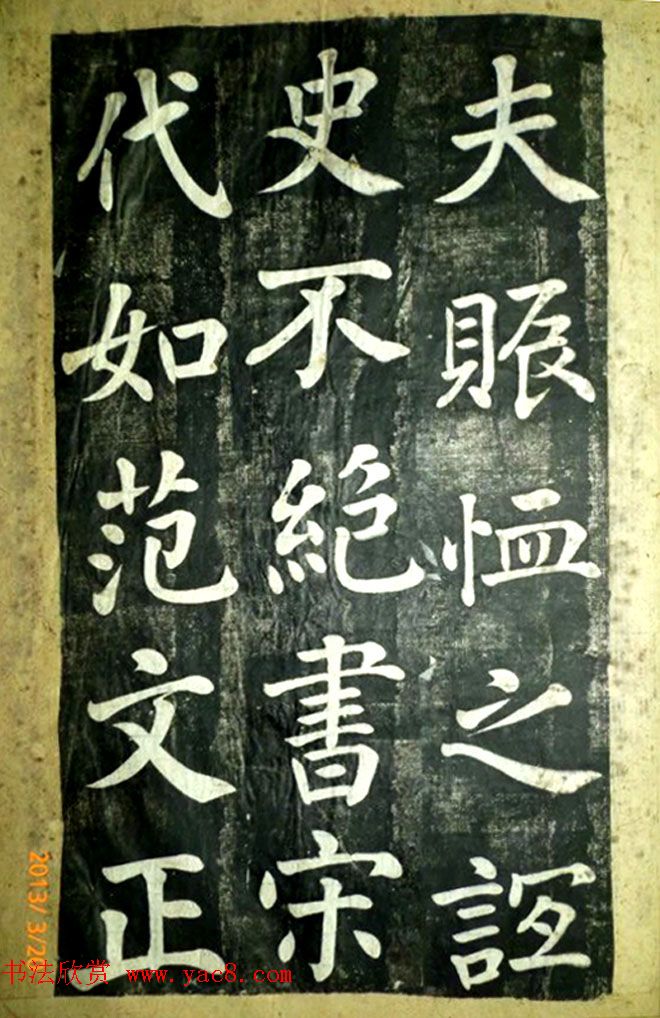 夫賑恤之誼
史不絶書宋
代如范文正
书法欣赏 www.yac8.com